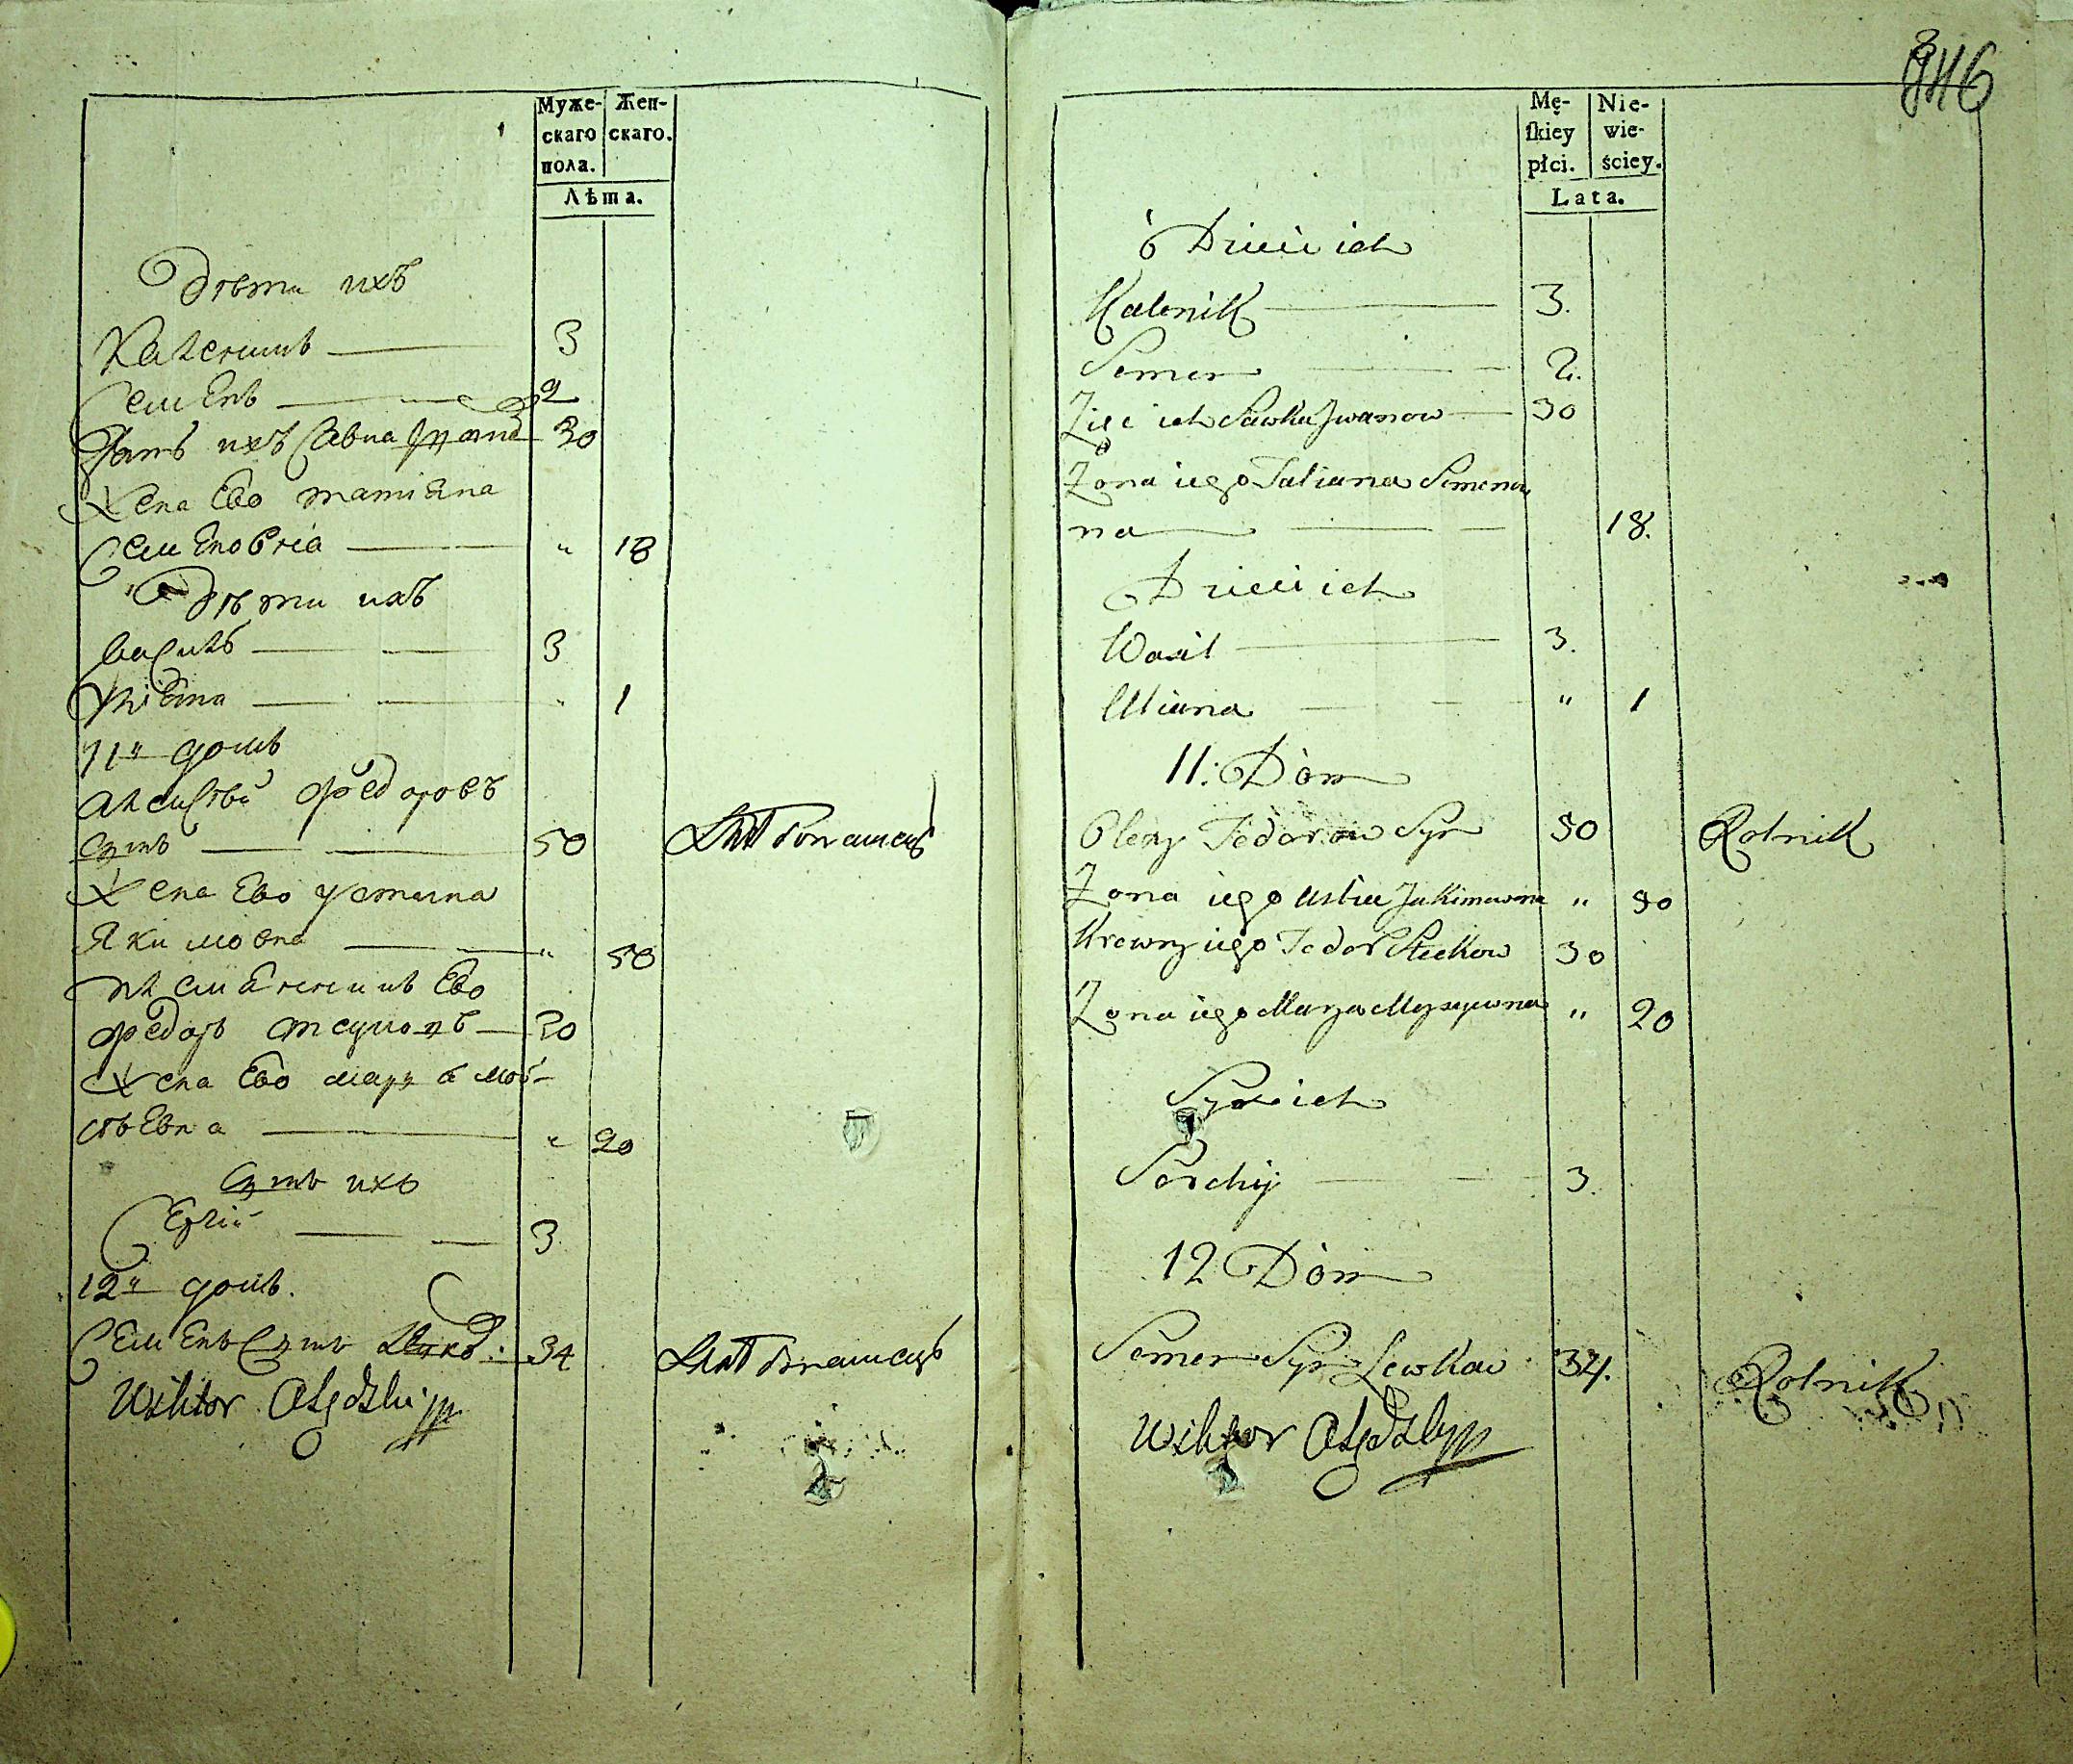 Муже-
скаго
пола.
Жен-
скаго.
Лѣта.
Дѣти ихъ
3
Семенъ 2
Зять ихъ Савка 30
Жена Ево татиана
Семеновна " 18
Дѣти ихъ
Василь 3
" 1
11й домъ
Федоровъ
сынъ 50
Жена Ево устина
Якимовна " 50
племянникъ Ево
Федоръ 30
Жена Ево маря мой-
сѣевна " 20
Сынъ ихъ
Сергій 3
12й домъ.
Семенъ Сынъ 34
Wiktor
346
Mę-
ſkiey
płci.
Nie-
wie-
ściey.
Lata.
Dzieci ich
Kalenik 3.
Semen 2.
Zięć ich Sawka Jwanow 30
Żona iego Tatiana Semenow
na 18.
Dzieci ich
Wasil 3.
Uliana " 1
11: Dòm
Olexy Fedorow Syn 50 Rolnik
Żona iego Ustia Jakimowna " 50
Krewny iego Fedor 30
Żona iego Marya Moyseyewna " 20
Syn ich
Serchij 3.
12 Dòm
Semen Syn Lewkow 34. Rolnik
Wiktor